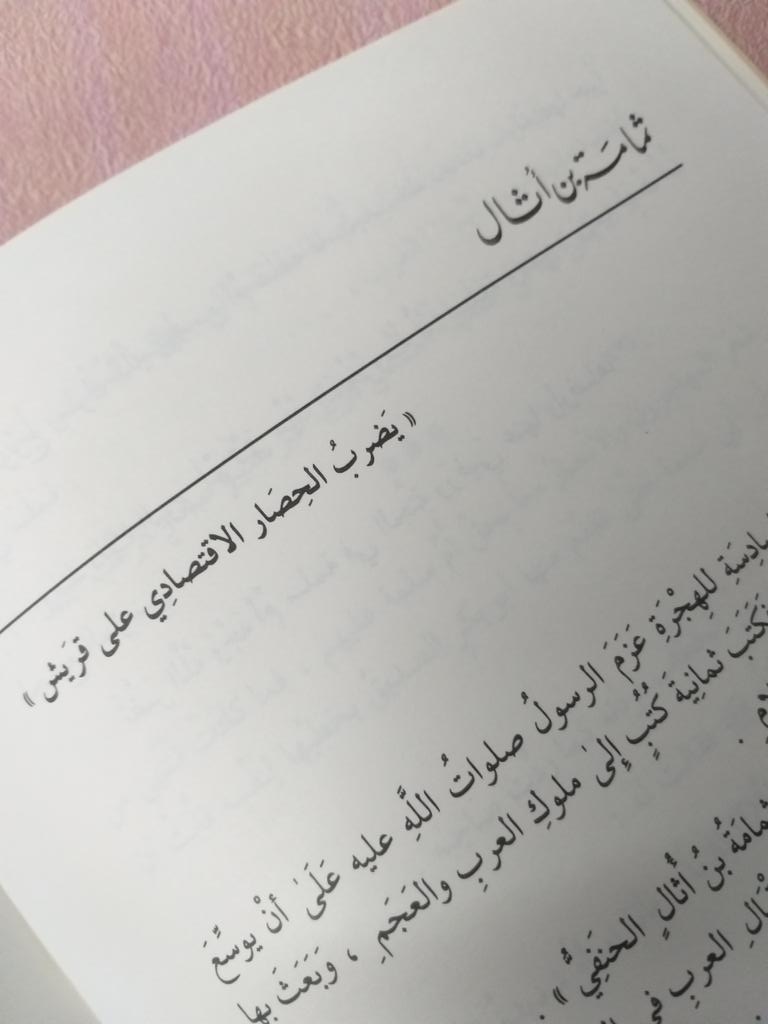 ثمامة بن أثال
« يَضرِبُ الحِصَار الاقتصادِي على قرَيش »
للهِجْرَةِ عَزَمَ الرسولُ صلواتُ اللَّهِ عليه عَلَىٰ أنْ يوسِّعَ
فكَتَبَ ثمانِيَةَ كُتُبٍ إلىٰ ملوكِ العربِ والعَجَمِ ، وَبَعَثَ بها
ثُمامَةُ بنُ أُثالٍ الحنفِيُّ »
العربِ في